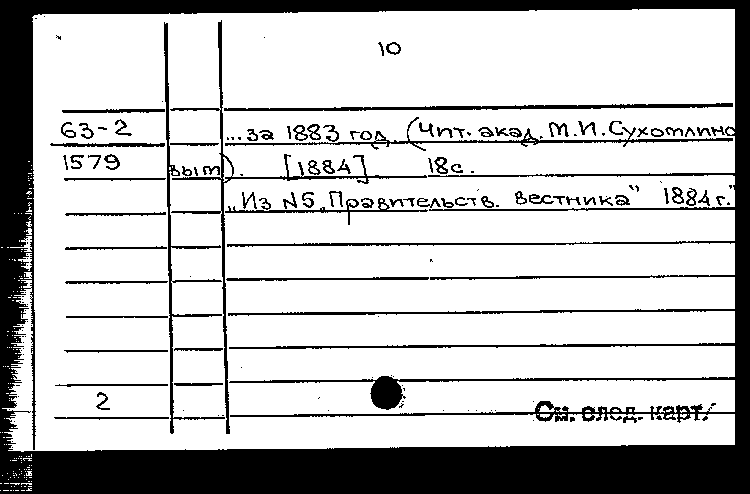 10
63-2 ...за 1883 год. (Чит. акад. М.И. Сухомлино
1579 вым). [1884]. 18с.
„Из N5 „Правительств. вестника" 1884 г."
2
См. след. карт/